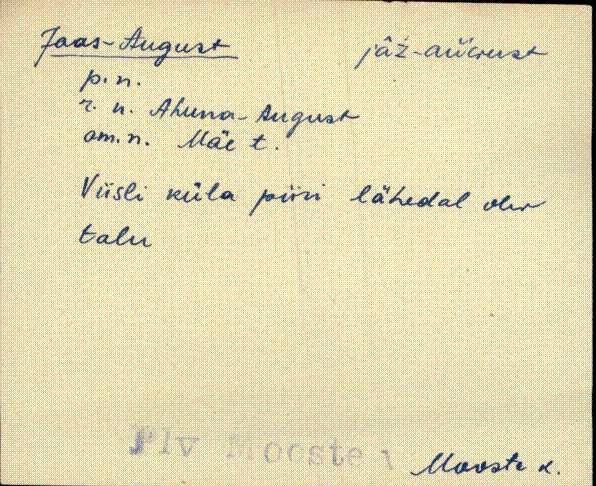 Jaas-August jäź-aúǵust
p. n.
r. n. Ahuna-August
om. n. Mäe t.
Viisli küla piiri lähedal olev
talu
Plv Mooste
Mooste k.